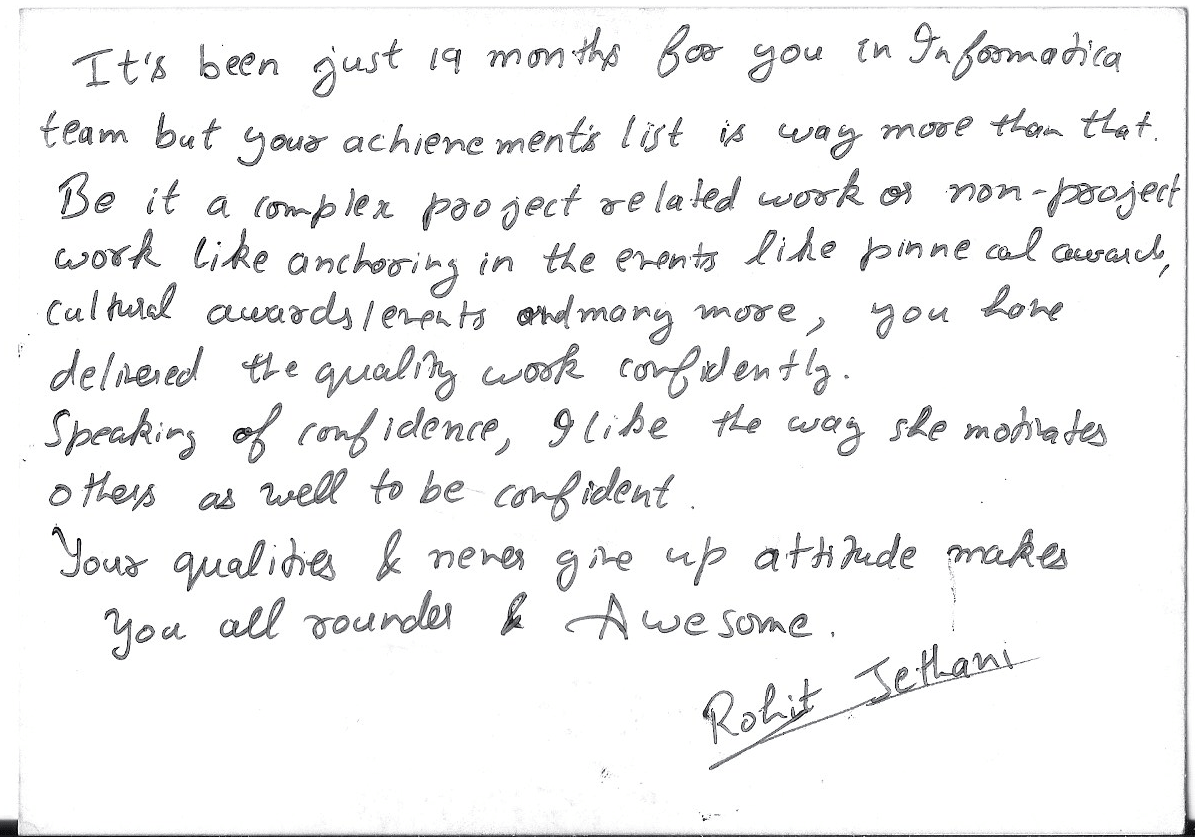 It's been just 19 months for you in Informatica
team but your achievement's list is way more than that.
Be it a complex project related work or non-project
work like anchoring in the events like pinnecal awards,
cultural awards/events and many more, you have
delivered the quality work confidently.
Speaking of confidence, I like the way she motivates
others as well to be confident.
Your qualities & never give up attitude makes
you all rounder & Awesome.
Rohit Jethani